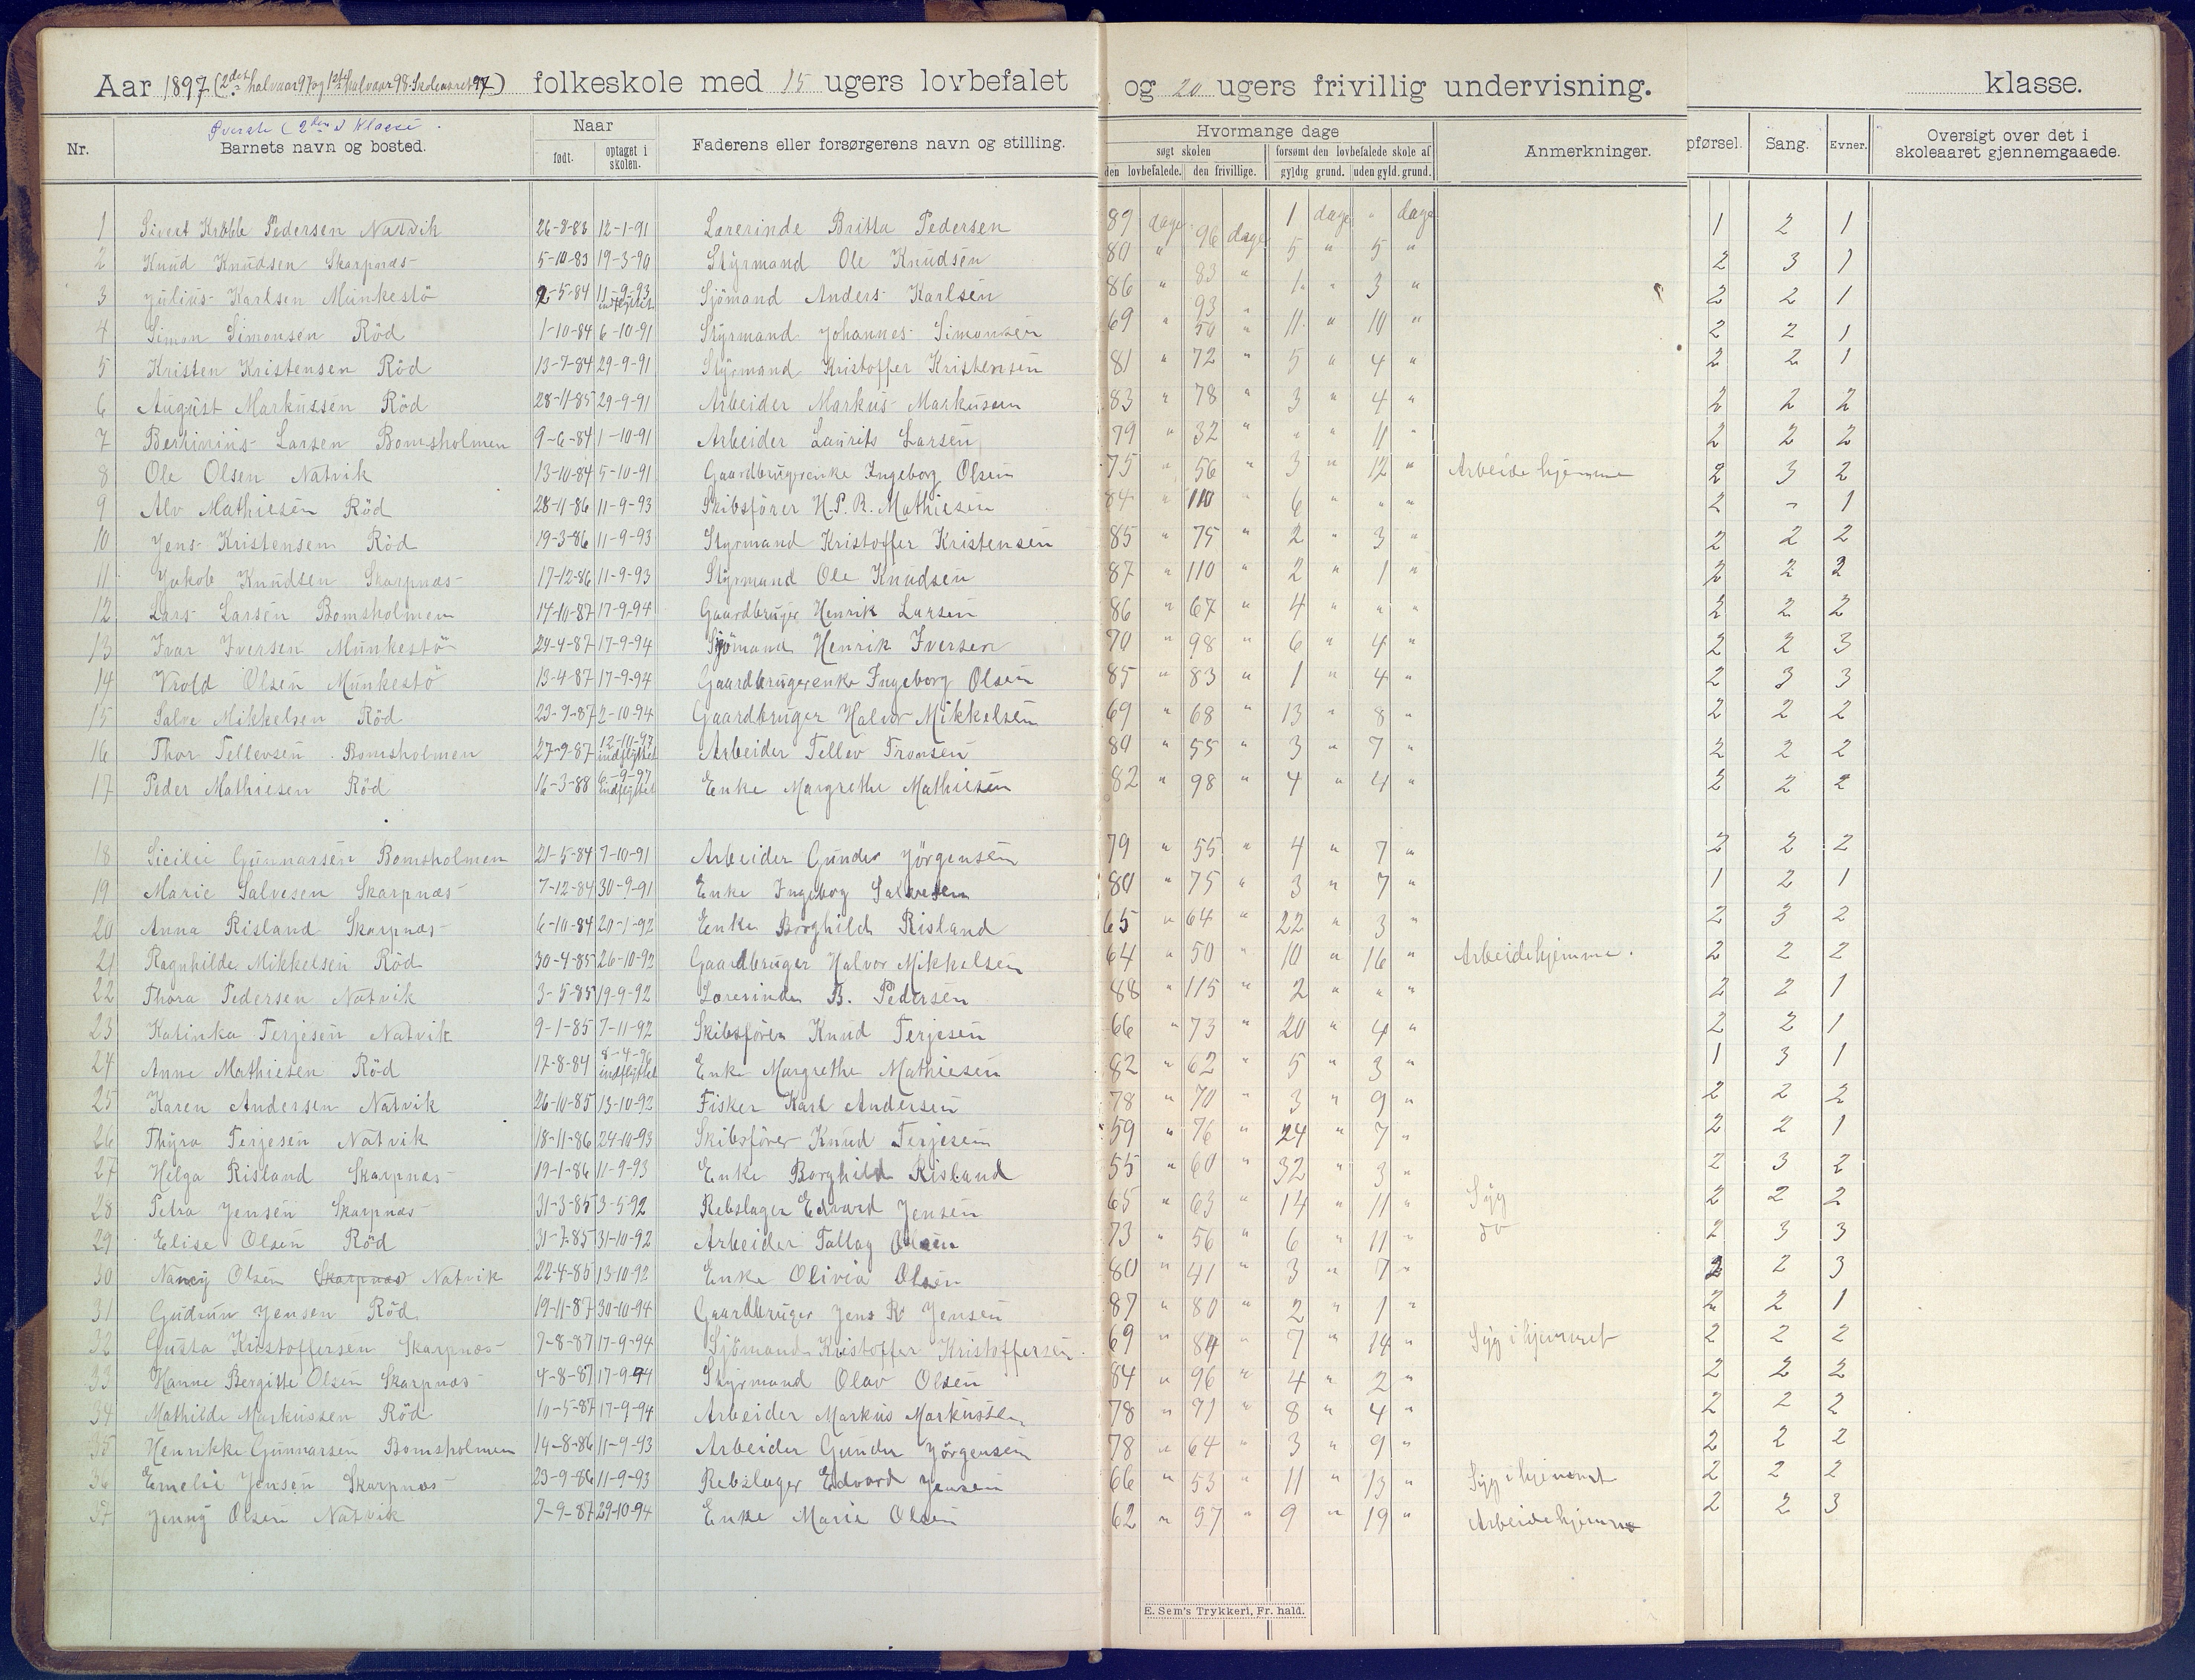 Aar 1897 (2det halvaar 97 og 1ste halvaar 98. Skoleaaret 97) folkeskole med 15 ugers lovbefalet og 20 ugers frivillig undervisning. klasse.
Øverste (2den) Klasse.
Nr. Barnets navn og bosted. Naar født. optaget i skolen. Faderens eller forsørgerens navn og stilling. Hvormange dage søgt skolen den lovbefalede. den frivillige. forsømt den lovbefalede skole af gyldig grund. uden gyld. grund. Anmerkninger. pførsel. Sang. Evner. Oversigt over det i skoleaaret gjennemgaaede.
1 Sivert Krabbe Pedersen Natvik 26-8-83 12-1-91 Lærerinde Britta Pedersen 89 dage 96 dage 1 dage " dage 1 2 1
2 Knud Knudsen Skarpnæs 5-10-83 19-3-90 Styrmand Ole Knudsen 80 " 83 " 5 " 5 " 2 3 1
3 Julius Karlsen Munkestö 2-5-84 11-9-93 indflyttet Sjömand Anders Karlsen 86 " 93 " 1 " 3 " 2 2 1
4 Simon Simonsen Röd 1-10-84 6-10-91 Styrmand Johannes Simonsen 69 " 50 " 11 " 10 " 2 2 1
5 Kristen Kristensen Röd 13-7-84 29-9-91 Styrmand Kristoffer Kristensen 81 " 72 " 5 " 4 " 2 2 1
6 August Markussen Röd 28-11-85 29-9-91 Arbeider Markus Markusen 83 " 78 " 3 " 4 " 2 2 2
7 Bertinius Larsen Bomsholmen 9-6-84 1-10-91 Arbeider Laurits Larsen 79 " 32 " " " 11 " 2 2 2
8 Ole Olsen Natvik 13-10-84 5-10-91 Gaardbrugerenke Ingeborg Olsen 75 " 56 " 3 " 12 " Arbeide hjemme 2 3 2
9 Alv Mathiesen Röd 28-11-86 11-9-93 Skibsförer H.P.R. Mathiesen 84 " 110 " 6 " " " 2 - 1
10 Jens Kristensen Röd 19-3-86 11-9-93 Styrmand Kristoffer Kristensen 85 " 75 " 2 " 3 " 2 2 2
11 Jakob Knudsen Skarpnæs 17-12-86 11-9-93 Styrmand Ole Knudsen 87 " 110 " 2 " 1 " 2 2 2
12 Lars Larsen Bomsholmen 14-10-87 17-9-94 Gaardbruger Henrik Larsen 86 " 67 " 4 " " " 2 2 2
13 Ivar Iversen Munkestö 29-4-87 17-9-94 Sjömand Henrik Iversen 70 " 98 " 6 " 4 " 2 2 3
14 Vrold Olsen Munkestö 13-4-87 17-9-94 Gaardbrugerenke Ingeborg Olsen 85 " 83 " 1 " 4 " 2 3 3
15 Salve Mikkelsen Röd 23-9-87 2-10-94 Gaardbruger Halvor Mikkelsen 69 " 68 " 13 " 8 " 2 2 2
16 Thor Tellevsen Bomsholmen 27-9-87 12-10-97 indflyttet Arbeider Tellev Tronsen 80 " 55 " 3 " 7 " 2 2 2
17 Peder Mathiesen Röd 16-3-88 6-9-97 indflyttet Enke Margrethe Mathiesen 82 " 98 " 4 " 4 " 2 2 2
18 Sicilie Gunnarsen Bomsholmen 21-5-84 7-10-91 Arbeider Gunder Jörgensen 79 " 55 " 4 " 7 " 2 2 2
19 Marie Salvesen Skarpnæs 7-12-84 30-9-91 Enke Ingeborg Salvesen 80 " 75 " 3 " 7 " 1 2 1
20 Anna Risland Skarpnæs 6-10-84 20-1-92 Enke Borghild Risland 65 " 64 " 22 " 3 " 2 3 2
21 Ragnhilde Mikkelsen Röd 30-4-85 26-10-92 Gaardbruger Halvor Mikkelsen 64 " 50 " 10 " 16 " Arbeide hjemme. 2 2 2
22 Thora Pedersen Natvik 3-5-85 19-9-92 Lærerinde B. Pedersen 88 " 115 " 2 " " " 2 2 1
23 Katinka Terjesen Natvik 9-1-85 7-11-92 Skibsförer Knud Terjesen 66 " 73 " 20 " 4 " 2 2 1
24 Anne Mathiesen Röd 17-8-84 8-4-96 indflyttet Enke Margrethe Mathiesen 82 " 62 " 5 " 3 " 1 3 1
25 Karen Andersen Natvik 26-10-85 13-10-92 Fisker Karl Andersen 78 " 70 " 3 " 9 " 2 2 2
26 Thyra Terjesen Natvik 18-11-86 24-10-93 Skibsförer Knud Terjesen 59 " 76 " 24 " 7 " 2 2 1
27 Helga Risland Skarpnæs 19-1-86 11-9-93 Enke Borghild Risland 55 " 60 " 32 " 3 " 2 3 2
28 Petra Jensen Skarpnæs 31-3-85 3-5-92 Rebslager Edvard Jensen 65 " 63 " 14 " 11 " Syg 2 2 2
29 Elise Olsen Röd 31-7-85 31-10-92 Arbeider Tallag Olsen 73 " 56 " 6 " 11 " do 2 3 3
30 Nancy Olsen Skarpnæs Natvik 22-4-85 13-10-92 Enke Olivia Olsen 80 " 41 " 3 " 7 " 2 2 3
31 Gudrun Jensen Röd 19-11-87 30-10-94 Gaardbruger Jens R. Jensen 87 " 80 " 2 " 1 " 2 2 1
32 Gusta Kristoffersen Skarpnæs 7-8-87 17-9-94 Sjömand Kristoffer Kristoffersen 69 " 84 " 7 " 14 " Syg i hjemmet 2 2 2
33 Hanne Bergitte Olsen Skarpnæs 4-8-87 17-9-94 Styrmand Olav Olsen 84 " 96 " 4 " 2 " 2 2 2
34 Mathilde Markussen Röd 10-5-87 17-9-94 Arbeider Markus Markussen 78 " 71 " 8 " 4 " 2 2 2
35 Henrikke Gunnarsen Bomsholmen 14-8-86 11-9-93 Arbeider Gunder Jörgensen 78 " 64 " 3 " 9 " 2 2 2
36 Emelie Jensen Skarpnæs 23-9-86 11-9-93 Rebslager Edvard Jensen 66 " 53 " 11 " 13 " Syg i hjemmet 2 2 2
37 Jenny Olsen Natvik 7-9-87 29-10-94 Enke Marie Olsen 62 " 57 " 9 " 19 " Arbeide hjemme 2 2 3
E. Sem's Trykkeri, Fr. hald.